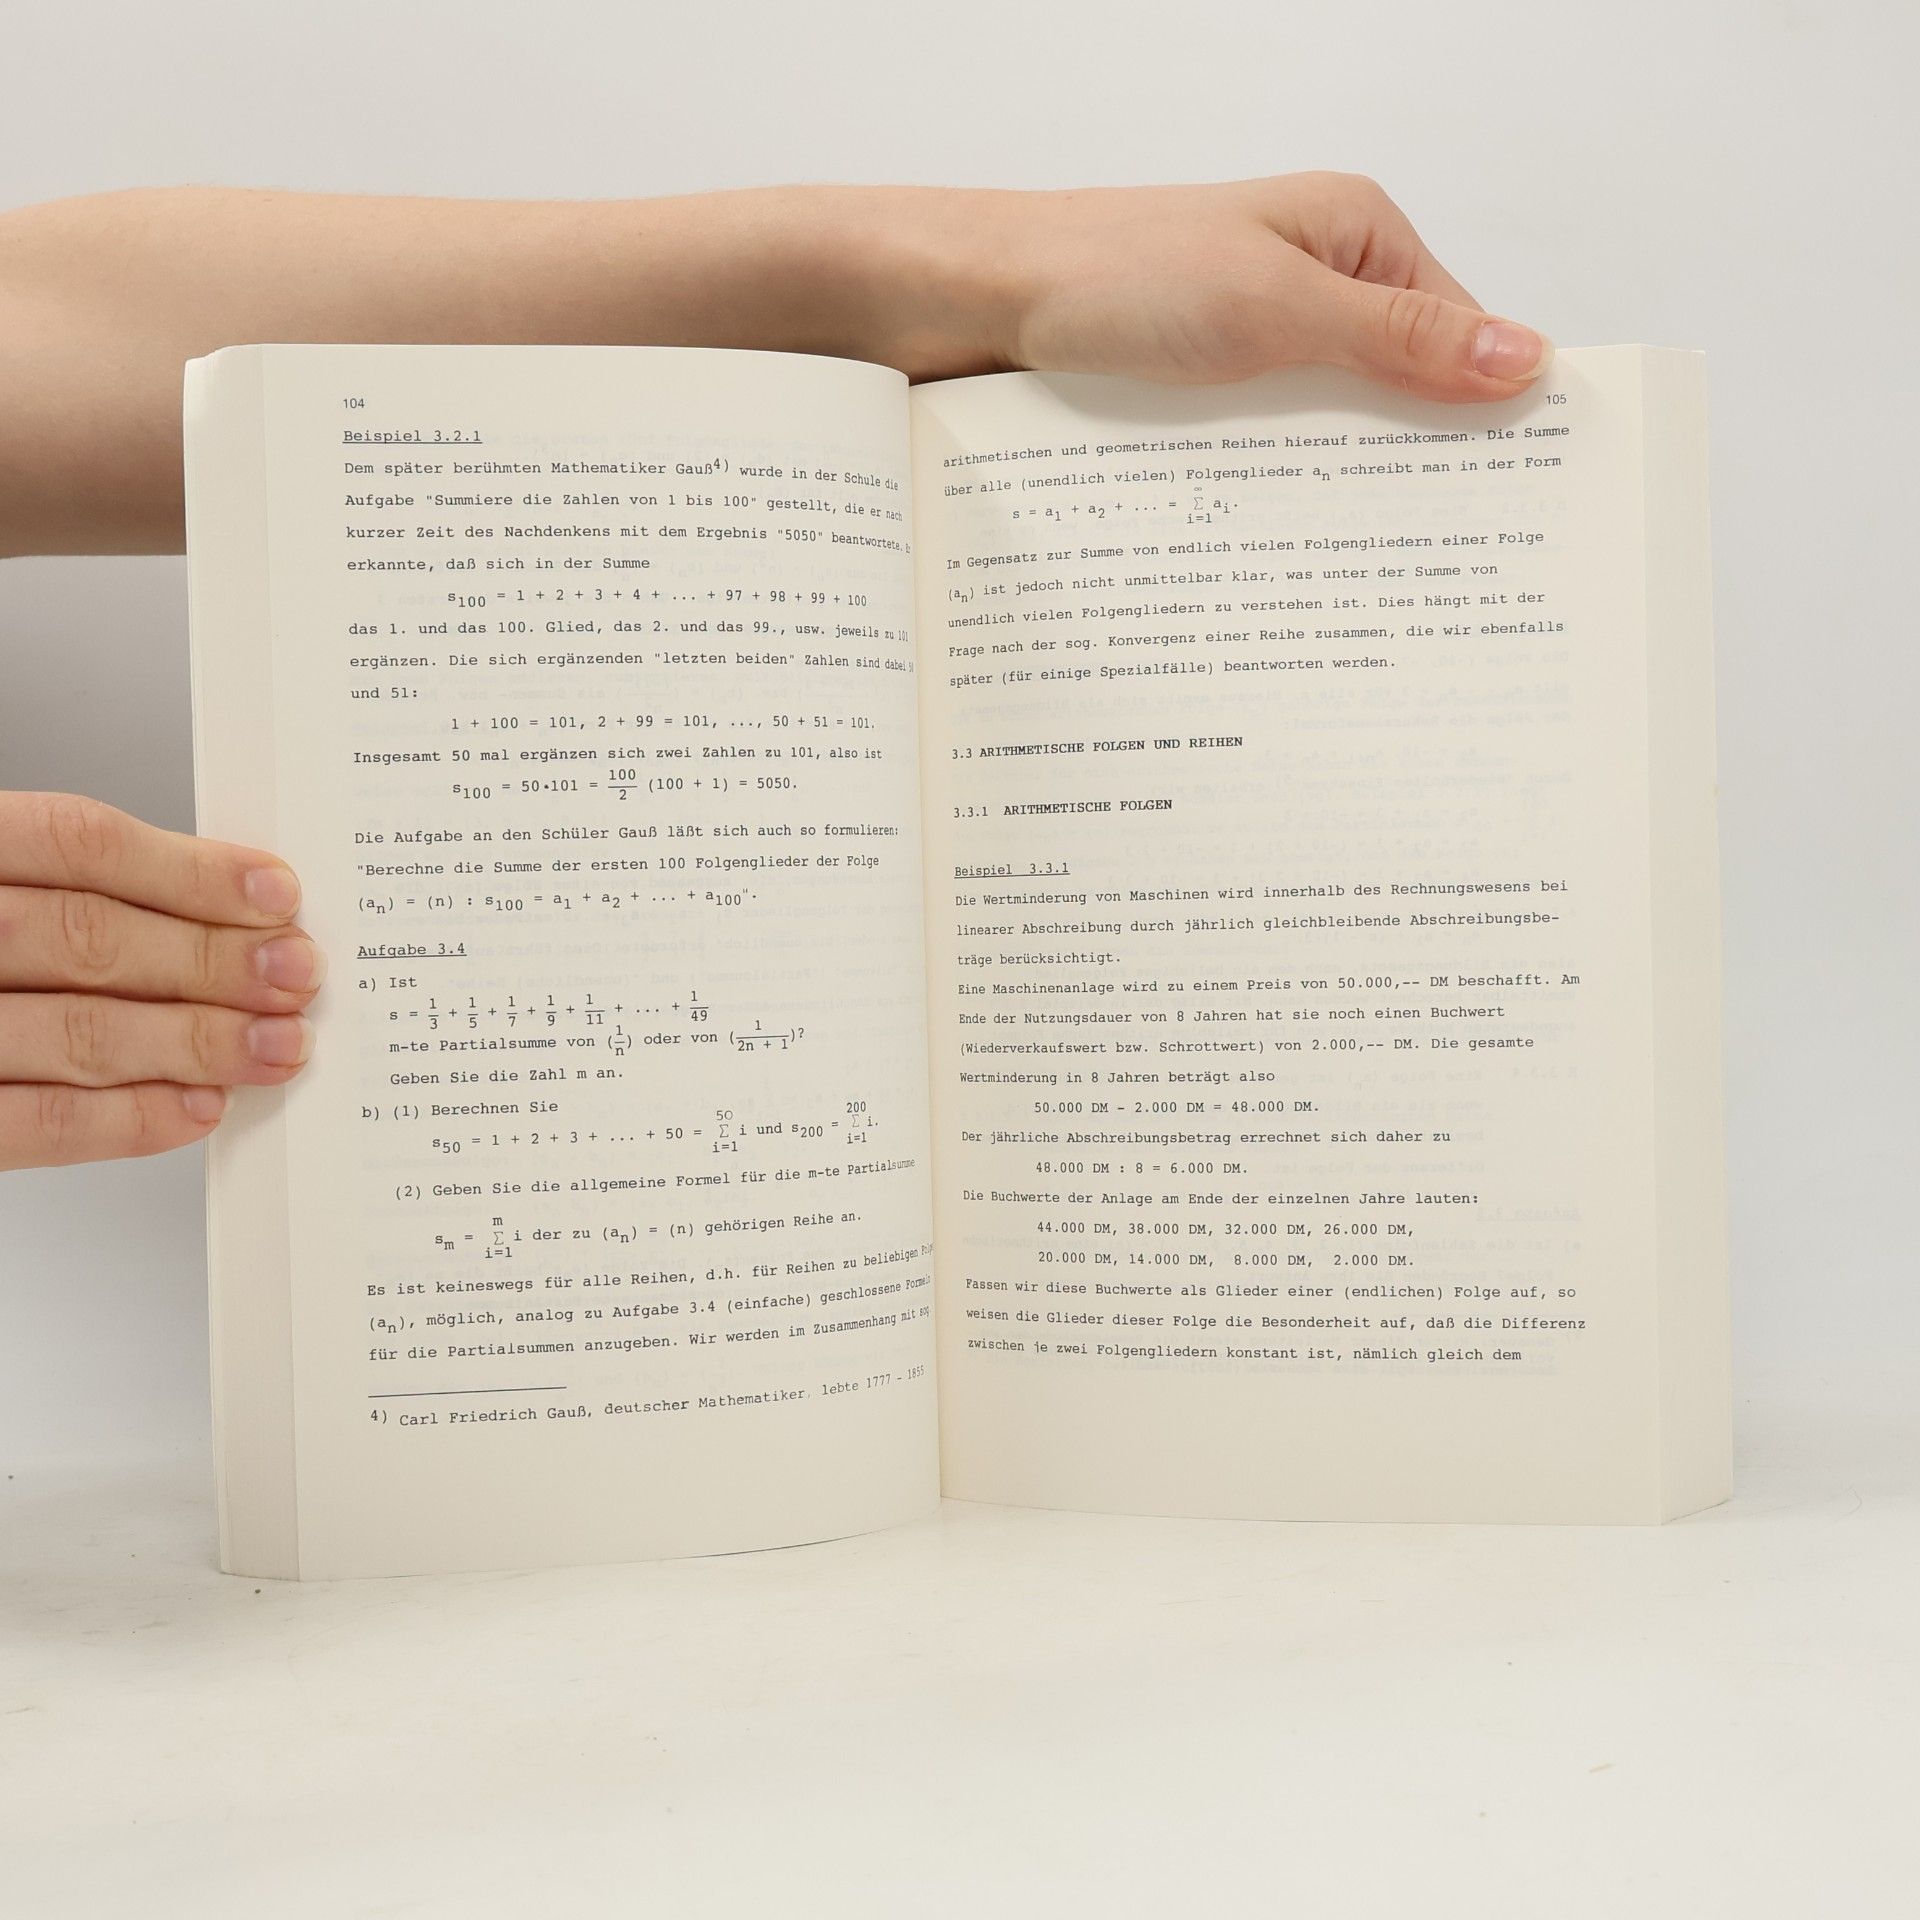 104
Beispiel 3.2.1
Dem später berühmten Mathematiker Gauß4) wurde in der Schule die
Aufgabe "Summiere die Zahlen von 1 bis 100" gestellt, die er nach
kurzer Zeit des Nachdenkens mit dem Ergebnis "5050" beantwortete. Er
erkannte, daß sich in der Summe
s100 = 1 + 2 + 3 + 4 + ... + 97 + 98 + 99 + 100
das 1. und das 100. Glied, das 2. und das 99., usw. jeweils zu 101
ergänzen. Die sich ergänzenden "letzten beiden" Zahlen sind dabei 50
und 51:
1 + 100 = 101, 2 + 99 = 101, ..., 50 + 51 = 101.
Insgesamt 50 mal ergänzen sich zwei Zahlen zu 101, also ist
s100 = 50•101 = 100/2 (100 + 1) = 5050.
Die Aufgabe an den Schüler Gauß läßt sich auch so formulieren:
"Berechne die Summe der ersten 100 Folgenglieder der Folge
(an) = (n) : s100 = a1 + a2 + ... + a100".
Aufgabe 3.4
a) Ist
s = 1/3 + 1/5 + 1/7 + 1/9 + 1/11 + ... + 1/49
m-te Partialsumme von (1/n) oder von (1/(2n + 1))?
Geben Sie die Zahl m an.
b) (1) Berechnen Sie
s50 = 1 + 2 + 3 + ... + 50 = 50 Σ i=1 i und s200 = 200 Σ i=1 i.
(2) Geben Sie die allgemeine Formel für die m-te Partialsumme
sm = m Σ i=1 i der zu (an) = (n) gehörigen Reihe an.
Es ist keineswegs für alle Reihen, d.h. für Reihen zu beliebigen
(an), möglich, analog zu Aufgabe 3.4 (einfache) geschlossene Formeln
für die Partialsummen anzugeben. Wir werden im Zusammenhang mit sog.
4) Carl Friedrich Gauß, deutscher Mathematiker, lebte 1777 - 1855
105
arithmetischen und geometrischen Reihen hierauf zurückkommen. Die Summe
über alle (unendlich vielen) Folgenglieder an schreibt man in der Form
s = a1 + a2 + ... = ∞ Σ i=1 ai.
Im Gegensatz zur Summe von endlich vielen Folgengliedern einer Folge
(an) ist jedoch nicht unmittelbar klar, was unter der Summe von
unendlich vielen Folgengliedern zu verstehen ist. Dies hängt mit der
Frage nach der sog. Konvergenz einer Reihe zusammen, die wir ebenfalls
später (für einige Spezialfälle) beantworten werden.
3.3 ARITHMETISCHE FOLGEN UND REIHEN
3.3.1 ARITHMETISCHE FOLGEN
Beispiel 3.3.1
Die Wertminderung von Maschinen wird innerhalb des Rechnungswesens bei
linearer Abschreibung durch jährlich gleichbleibende Abschreibungsbe-
träge berücksichtigt.
Eine Maschinenanlage wird zu einem Preis von 50.000,-- DM beschafft. Am
Ende der Nutzungsdauer von 8 Jahren hat sie noch einen Buchwert
(Wiederverkaufswert bzw. Schrottwert) von 2.000,-- DM. Die gesamte
Wertminderung in 8 Jahren beträgt also
50.000 DM - 2.000 DM = 48.000 DM.
Der jährliche Abschreibungsbetrag errechnet sich daher zu
48.000 DM : 8 = 6.000 DM.
Die Buchwerte der Anlage am Ende der einzelnen Jahre lauten:
44.000 DM, 38.000 DM, 32.000 DM, 26.000 DM,
20.000 DM, 14.000 DM, 8.000 DM, 2.000 DM.
Fassen wir diese Buchwerte als Glieder einer (endlichen) Folge auf, so
weisen die Glieder dieser Folge die Besonderheit auf, daß die Differenz
zwischen je zwei Folgengliedern konstant ist, nämlich gleich dem